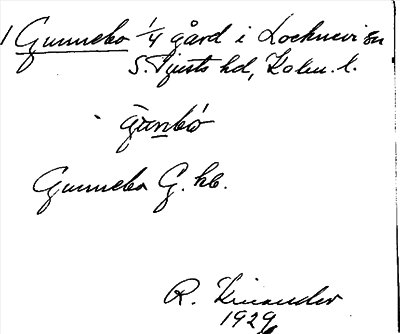 1 Gunnebo 1/4 gård i Locknevi sn
S. Tjusts hd, Kalm. l.
gunbó
Gunnebo G. kb.
R. Kinander
1929